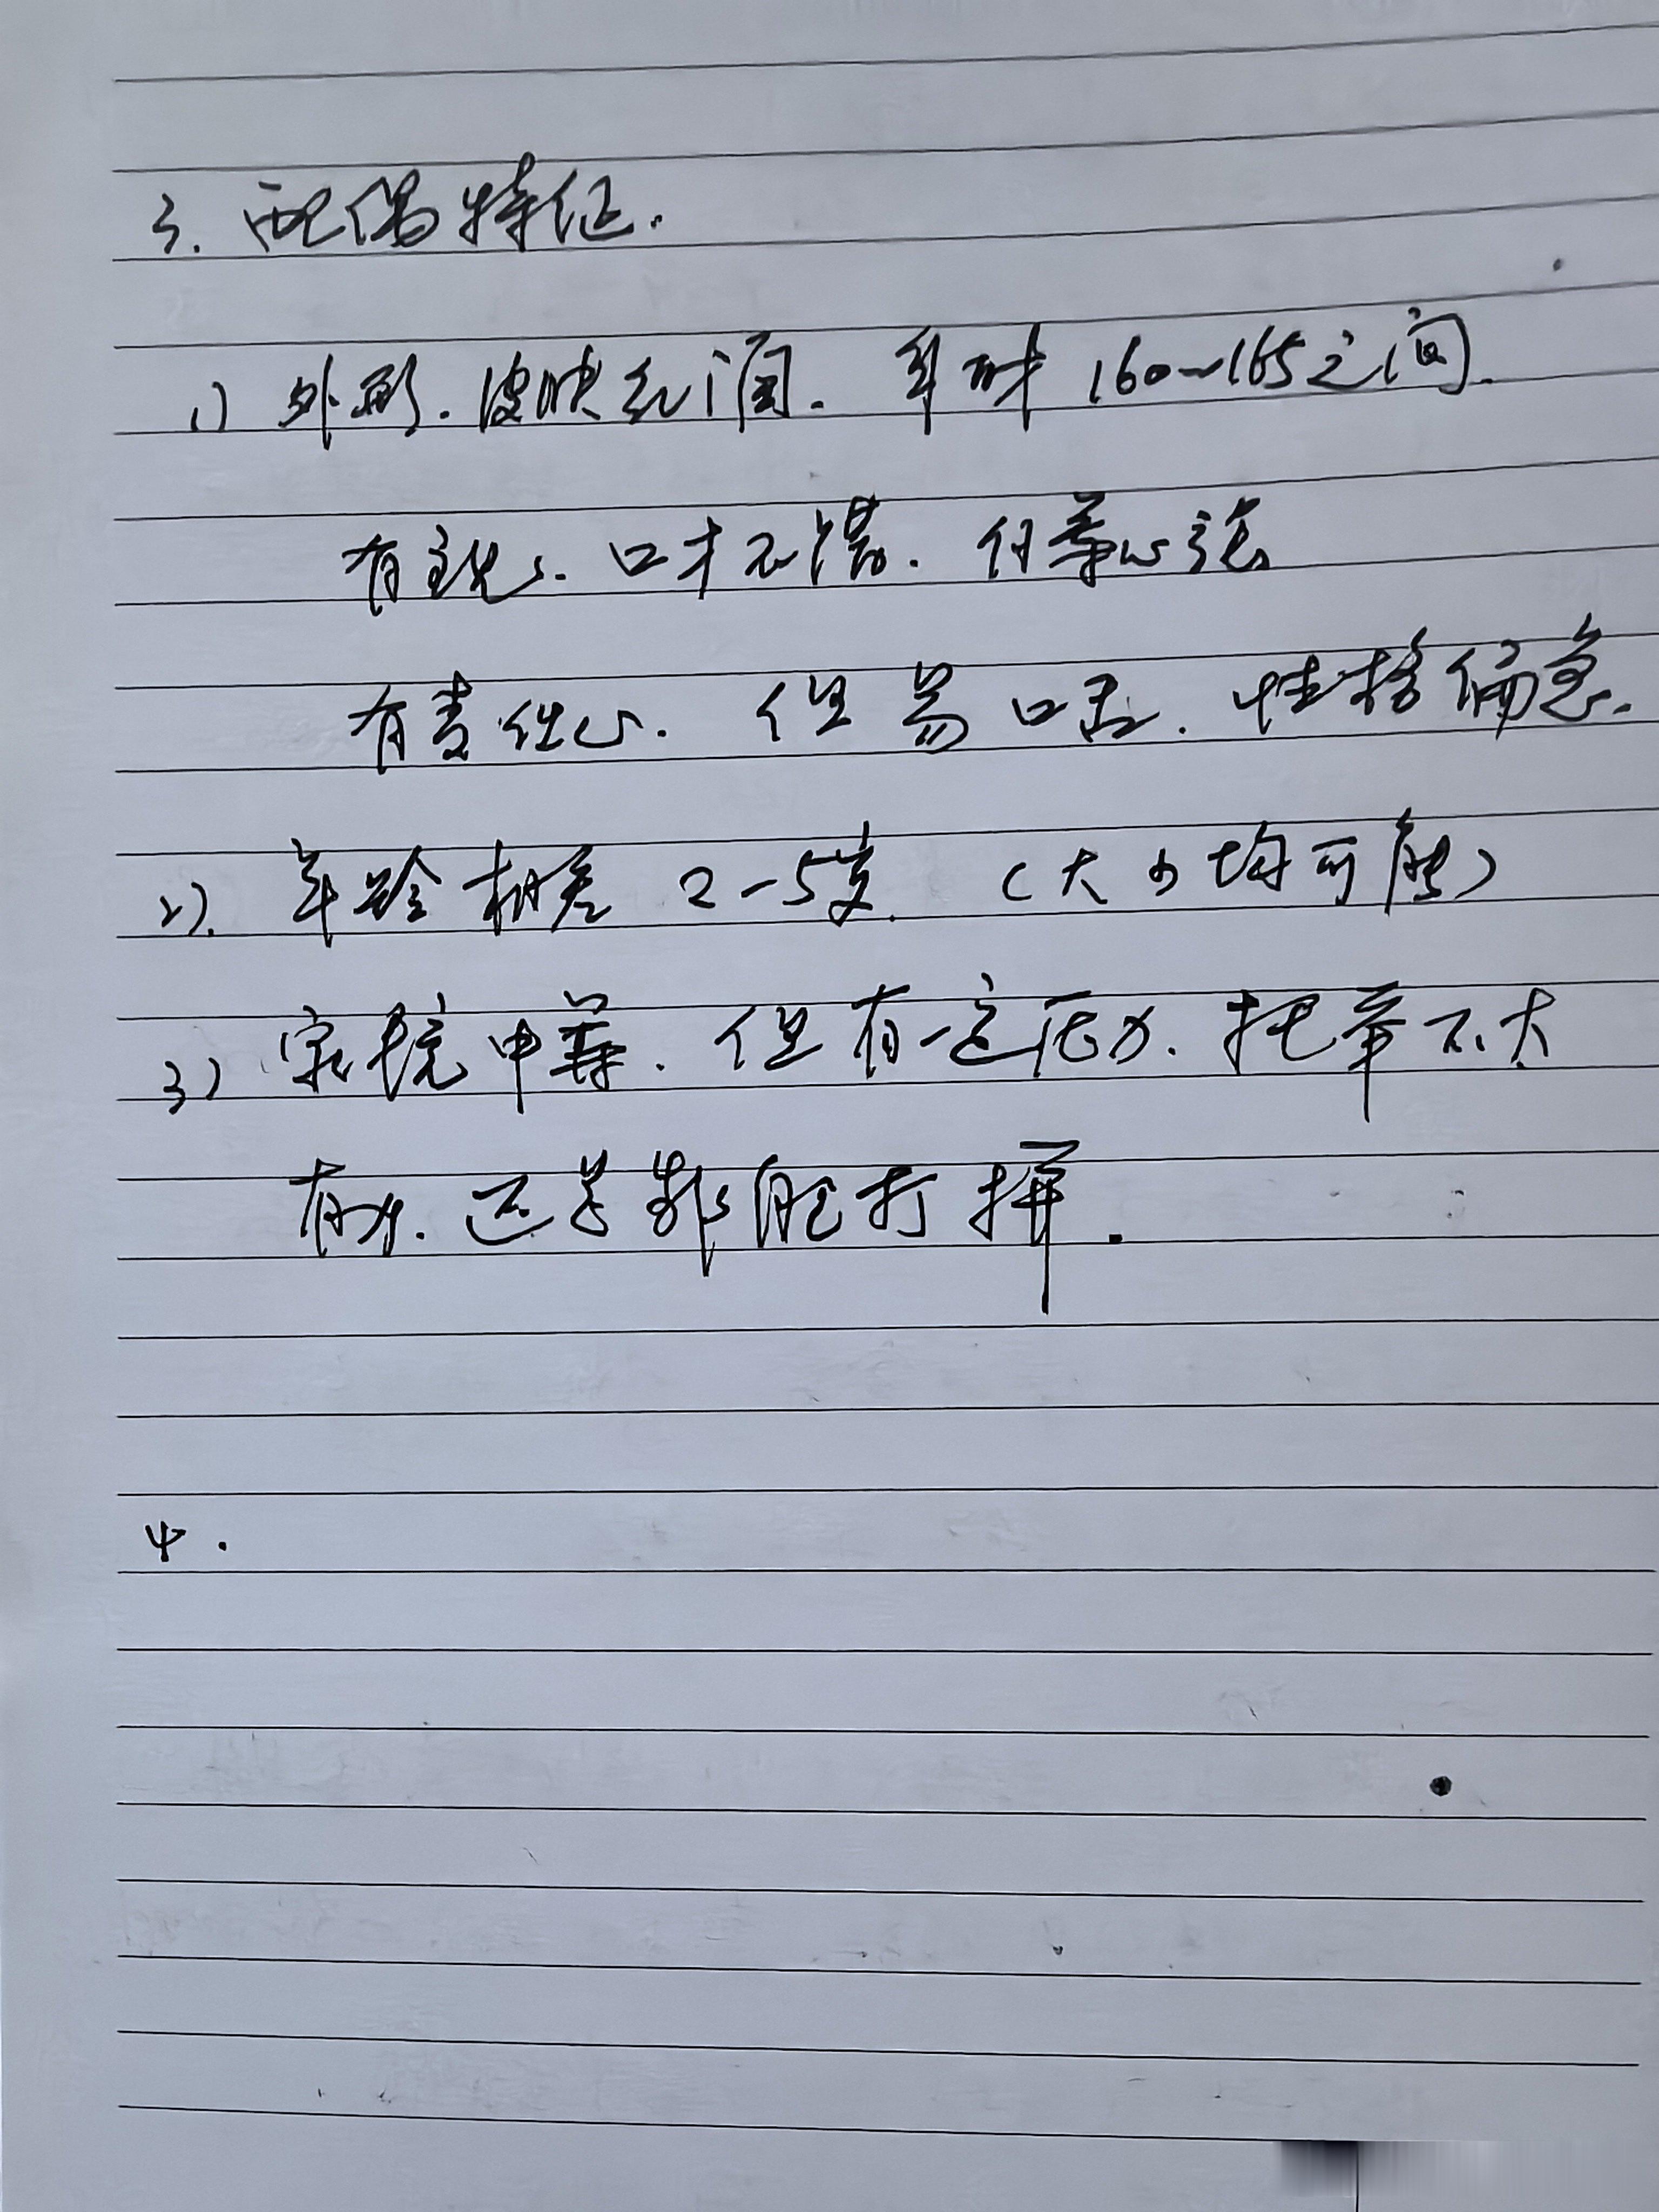 3. 配偶特征.
1) 外形. 皮肤红润. 身材 160~165之间.
有主见. 口才不错.
有责任心. 但易口舌. 性格偏急.
2). 年龄相差 2-5岁. (大小均可能)
3) 家境中等. 但有一定压力. 把幸不大
有. 还是都能打拼.
4.